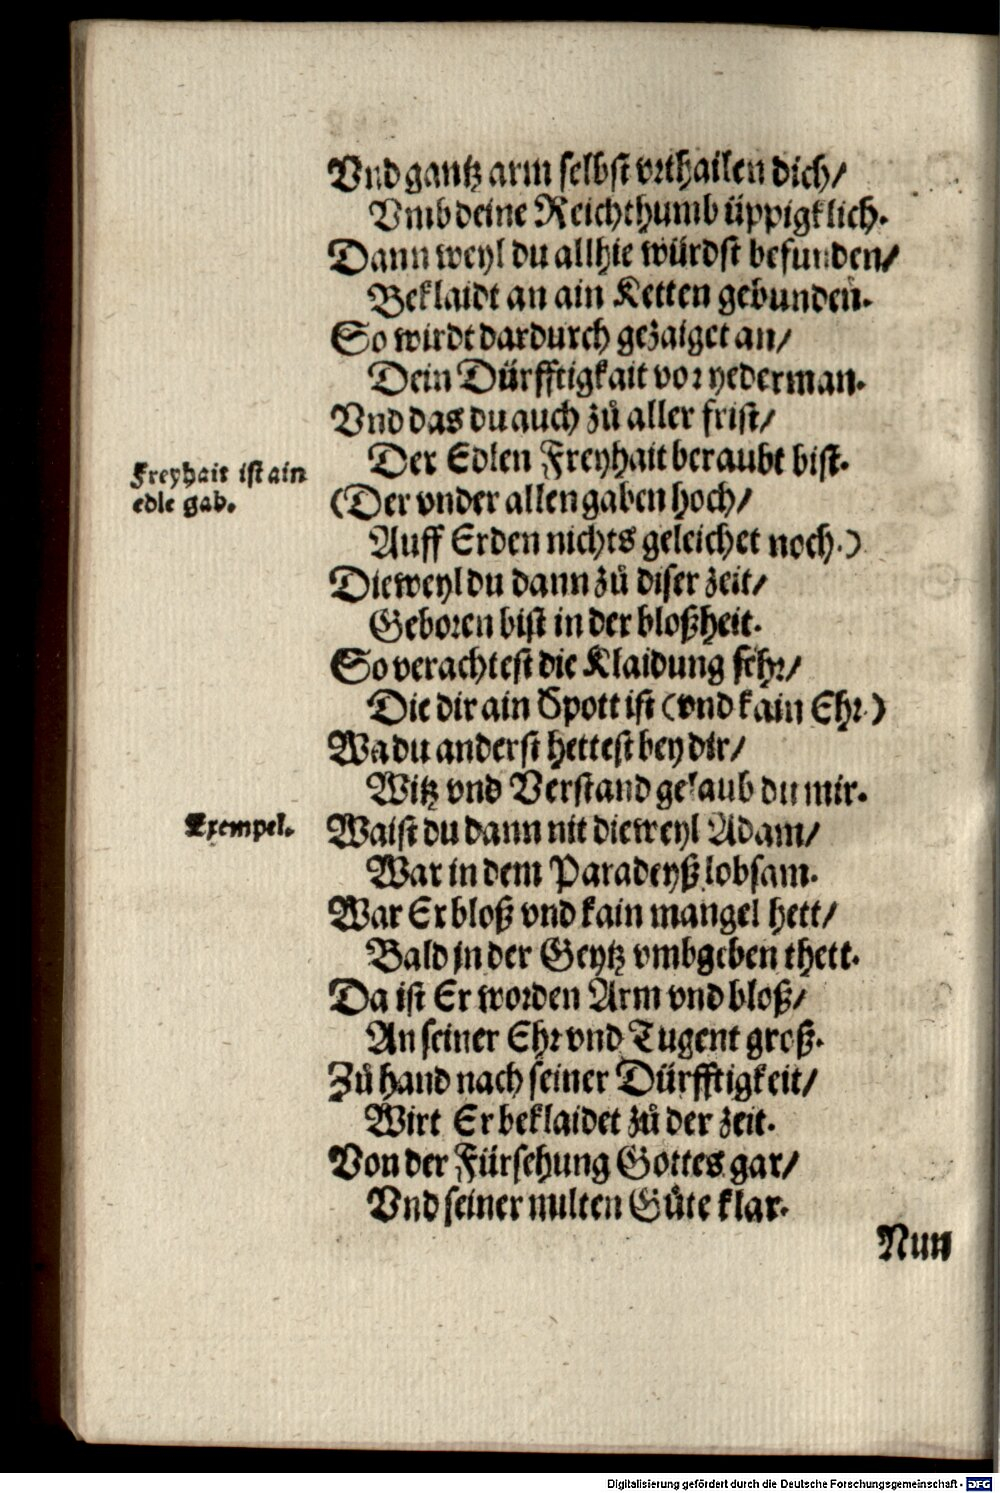 Vnd gantz arm selbst vrthailen dich/
Vmb deine Reichthumb üppigklich.
Dann weyl du allhie würdst befunden/
Beklaidt an ain Ketten gebunden.
So wirdt dardurch gezaiget an/
Dein Dürfftigkait vor yederman.
Vnd das du auch zů aller frist/
Der Edlen Freyhait beraubt bist.
Freyhait ist ain
edle gab.
(Der vnder allen gaben hoch/
Auff Erden nichts geleichet noch.)
Dieweyl du dann zů diser zeit/
Geboren bist in der bloßheit.
So verachtest die Klaidung sehr/
Die dir ain Spott ist (vnd kain Ehr.)
Wa du anderst hettest bey dir/
Witz vnd Verstand gelaub du mir.
Exempel.
Waist du dann nit dieweyl Adam/
War in dem Paradeyß lobsam.
War Er bloß vnd kain mangel hett/
Bald jn der Geytz vmbgeben thett.
Da ist Er worden Arm vnd bloß/
An seiner Ehr vnd Tugent groß.
Zů hand nach seiner Dürfftigkeit/
Wirt Er beklaidet zů der zeit.
Von der Fürsehung Gottes gar/
Vnd seiner milten Gůte klar.
Nun
Digitalisierung gefördert durch die Deutsche Forschungsgemeinschaft - DFG